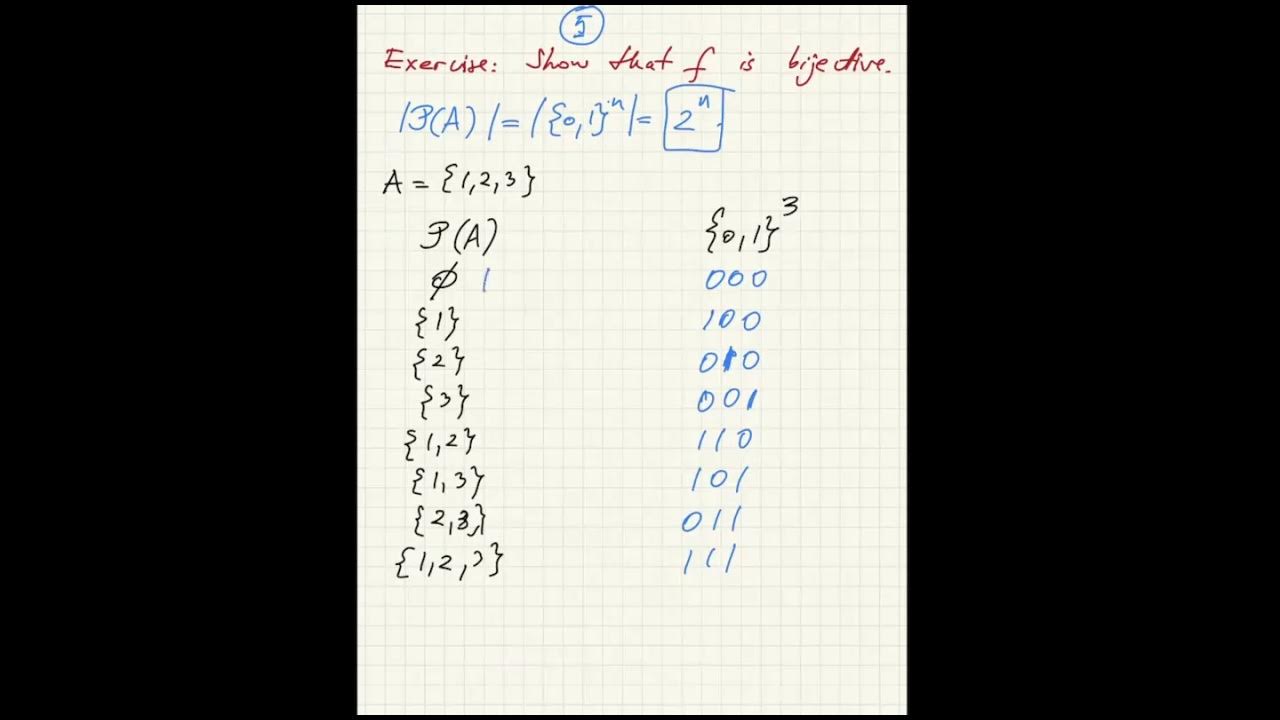 5
Exercise: Show that f is bijective.
|P(A)| = |{0,1}^n| = 2^n.
A = {1,2,3}
P(A) {0,1}^3
∅ 1 000
{1} 100
{2} 010
{3} 001
{1,2} 110
{1,3} 101
{2,3} 011
{1,2,3} 111